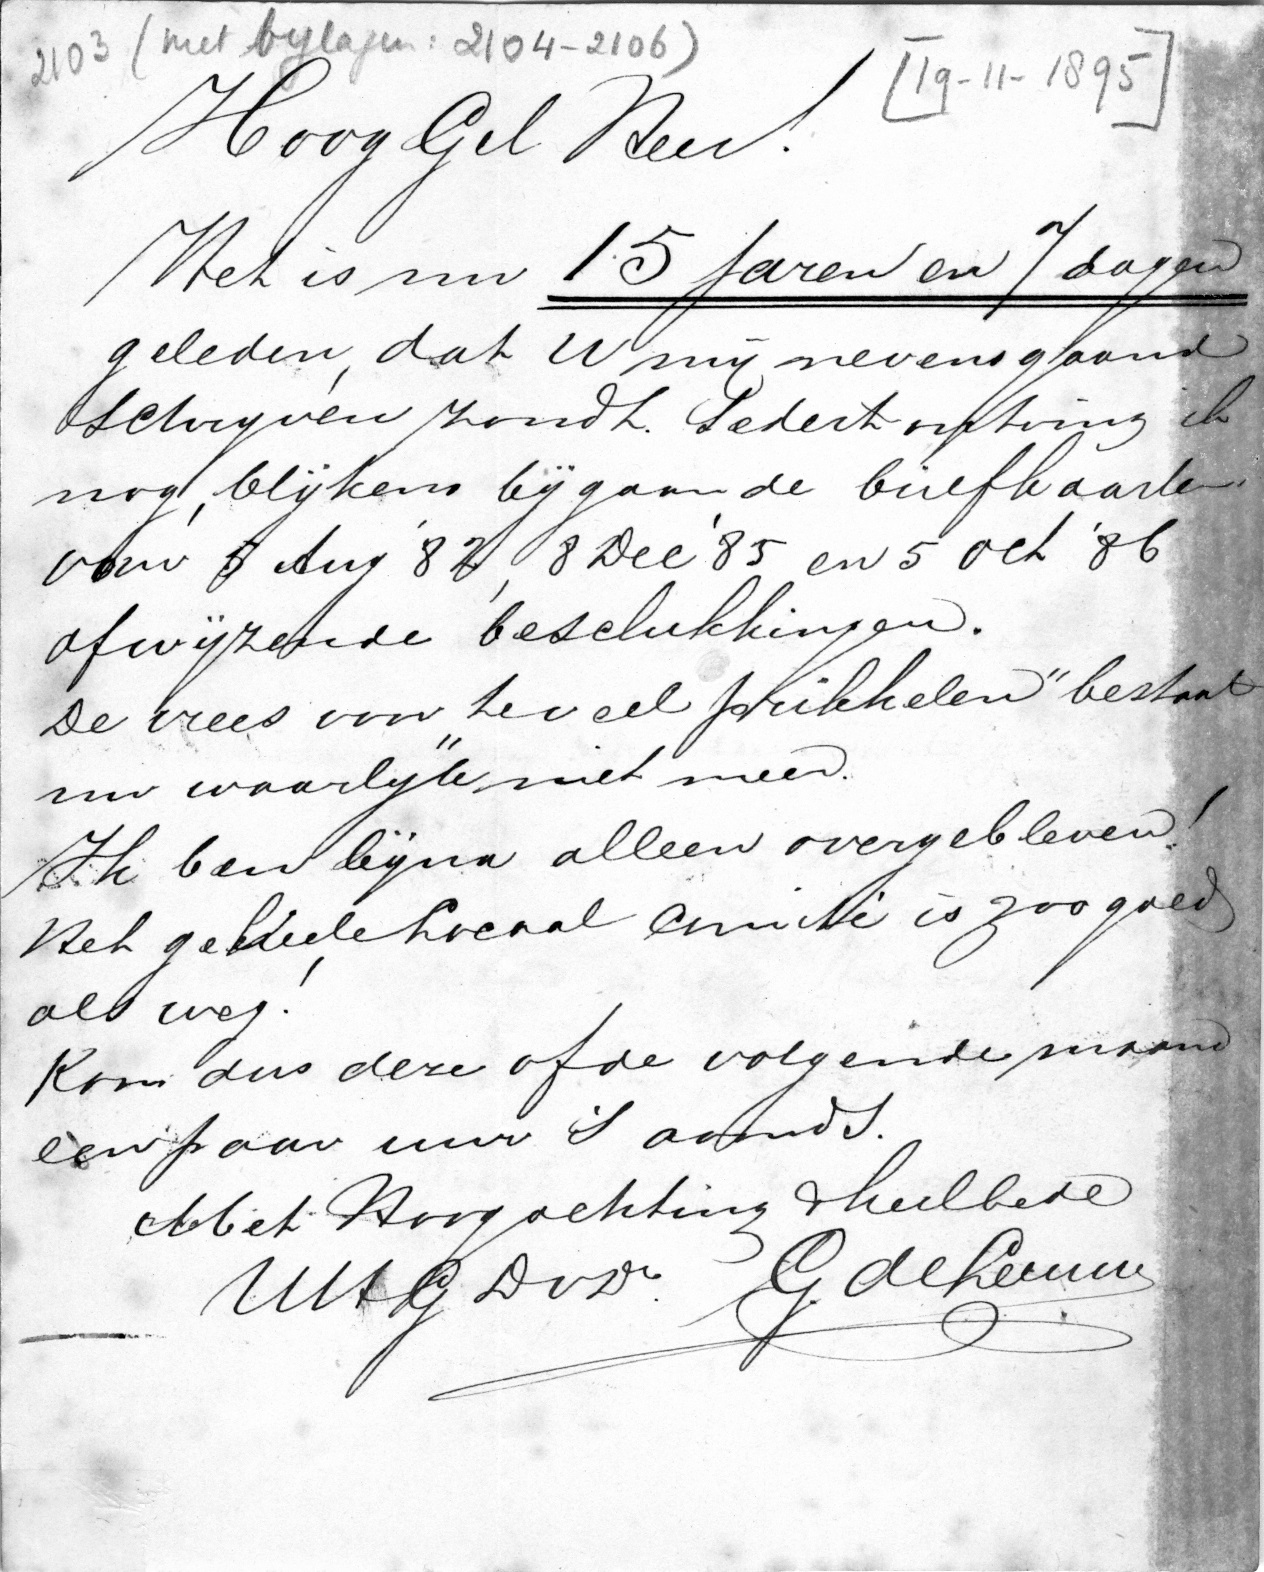 2103 (met bylagen: 2104-2106)
[19-11-1895]
Hoog Gel Heer!
Het is nu 15 jaren en 7 dagen
geleden, dat U mij nevensgaand
schryven zondt. Sedert ontving ik
nog, blijkens bijgaande briefkaarten
van 5 Aug '82, 8 Dec '85 en 5 Oct '86
afwijzende beschikkingen.
De vrees van te veel prikkelen" bestaat
nu waarlijk niet meer.
Ik ben bijna alleen overgebleven!
Het geheele Locaal Comité is zoo goed
als weg!
Kom dus deze of de volgende maand
een paar uur 's avonds.
Met Hoogachting & heilbede
UHG DvDr. G de Leeuw